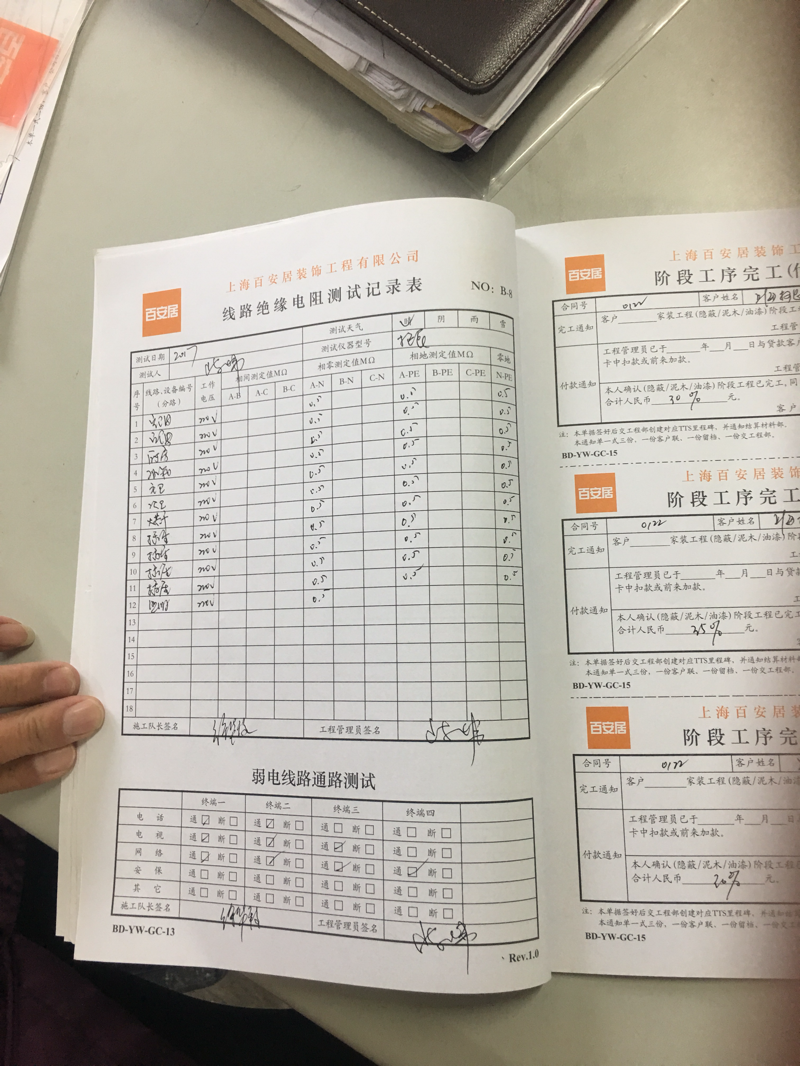 百安居
上海百安居装饰工程有限公司
线路绝缘电阻测试记录表
NO: B-8
测试日期 2017 测试天气 阴 雨 雪
测试人 测试仪器型号
序号 线路、设备编号(分路) 工作电压 相间测定值MΩ 相零测定值MΩ 相地测定值MΩ 零地
A-B A-C B-C A-N B-N C-N A-PE B-PE C-PE N-PE
1 220V 0.5 0.5 0.5
2 220V 0.5 0.5 0.5
3 厨房 220V 0.5 0.5 0.5
4 220V 0.5 0.5 0.5
5 220V 0.5 0.5 0.5
6 220V 0.5 0.5 0.5
7 220V 0.5 0.5 0.5
8 220V 0.5 0.5 0.5
9 220V 0.5 0.5 0.5
10 220V 0.5 0.5 0.5
11 220V 0.5 0.5 0.5
12 照明 220V 0.5
13
14
15
16
17
18
施工队长签名 工程管理员签名
弱电线路通路测试
终端一 终端二 终端三 终端四
电话 通 断 通 断 通 断 通 断
电视 通 断 通 断 通 断 通 断
网络 通 断 通 断 通 断 通 断
安保 通 断 通 断 通 断 通 断
其它 通 断 通 断 通 断 通 断
施工队长签名 工程管理员签名
BD-YW-GC-13
Rev.1.0
百安居
上海百安居装饰
阶段工序完工(
合同号 0122 客户姓名
完工通知 客户 家装工程(隐蔽/泥木/油漆)阶段工
付款通知 工程管理员已于 年 月 日与贷款客
卡中扣款或前来加款。
工程管
本人确认(隐蔽/泥木/油漆)阶段工程已完工,同
合计人民币 30% 元。
注: 本单据签好后交工程部创建对应TTS里程碑,并通知结算材料部。
本通知单一式三份,一份客户联,一份留档,一份交工程部。
BD-YW-GC-15
百安居
上海百安居装
阶段工序完工
合同号 0122 客户姓名
完工通知 客户 家装工程(隐蔽/泥木/油漆)阶
付款通知 工程管理员已于 年 月 日与贷
卡中扣款或前来加款。
本人确认(隐蔽/泥木/油漆)阶段工程已完工
合计人民币 35% 元。
注: 本单据签好后交工程部创建对应TTS里程碑,并通知结算材料
本通知单一式三份,一份客户联,一份留档,一份交工程部。
BD-YW-GC-15
百安居
上海百安居装
阶段工序完
合同号 0122 客户姓名
完工通知 客户 家装工程(隐蔽/泥木/油漆)
付款通知 工程管理员已于 年 月 日与
卡中扣款或前来加款。
本人确认(隐蔽/泥木/油漆)阶段工程已完
合计人民币 30% 元。
注: 本单据签好后交工程部创建对应TTS里程碑,并通知结
本通知单一式三份,一份客户联,一份留档,一份交工程
BD-YW-GC-15